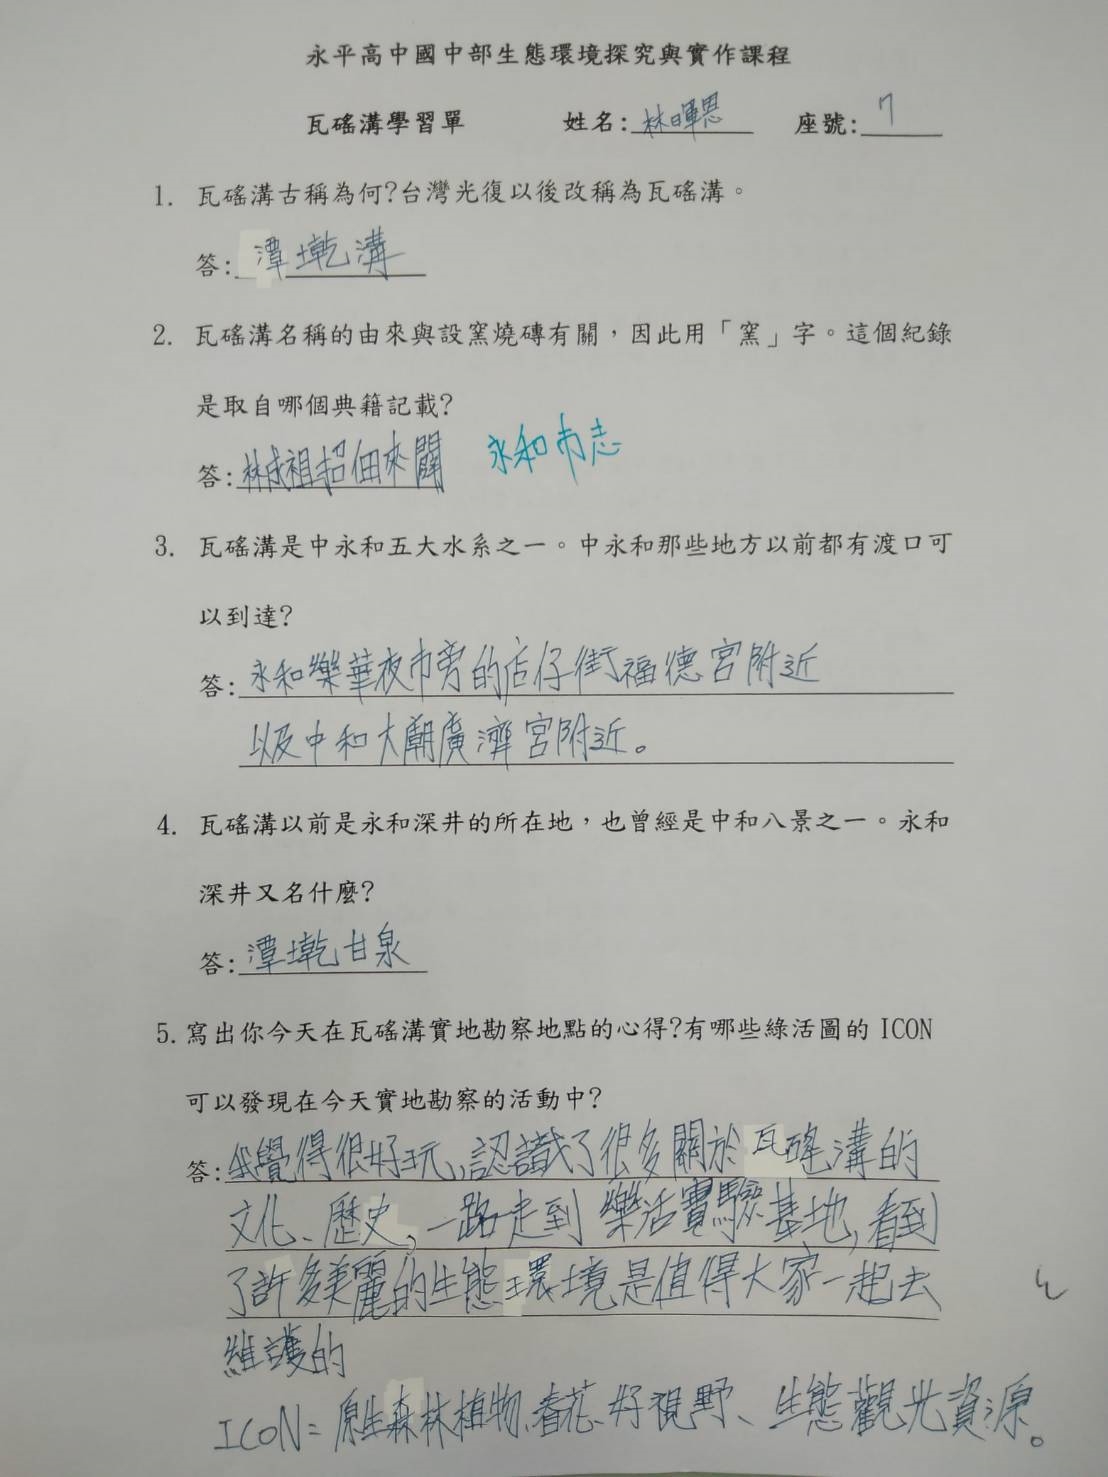 永平高中國中部生態環境探究與實作課程
瓦磘溝學習單 姓名:林暉恩 座號:7
1. 瓦磘溝古稱為何?台灣光復以後改稱為瓦磘溝。
答:潭墘溝
2. 瓦磘溝名稱的由來與設窯燒磚有關，因此用「窯」字。這個紀錄
是取自哪個典籍記載?
答:林成祖招佃來闢 永和市志
3. 瓦磘溝是中永和五大水系之一。中永和那些地方以前都有渡口可
以到達?
答:永和樂華夜市旁的店仔街福德宮附近
以及中和大廟廣濟宮附近。
4. 瓦磘溝以前是永和深井的所在地，也曾經是中和八景之一。永和
深井又名什麼?
答:潭墘甘泉
5. 寫出你今天在瓦磘溝實地勘察地點的心得?有哪些綠活圖的 ICON
可以發現在今天實地勘察的活動中?
答:我覺得很好玩,認識了很多關於瓦磘溝的
文化、歷史,一路走到樂活實驗基地,看到
了許多美麗的生態環境是值得大家一起去
維護的
ICON=原生森林植物、春花、好視野、生態觀光資源。